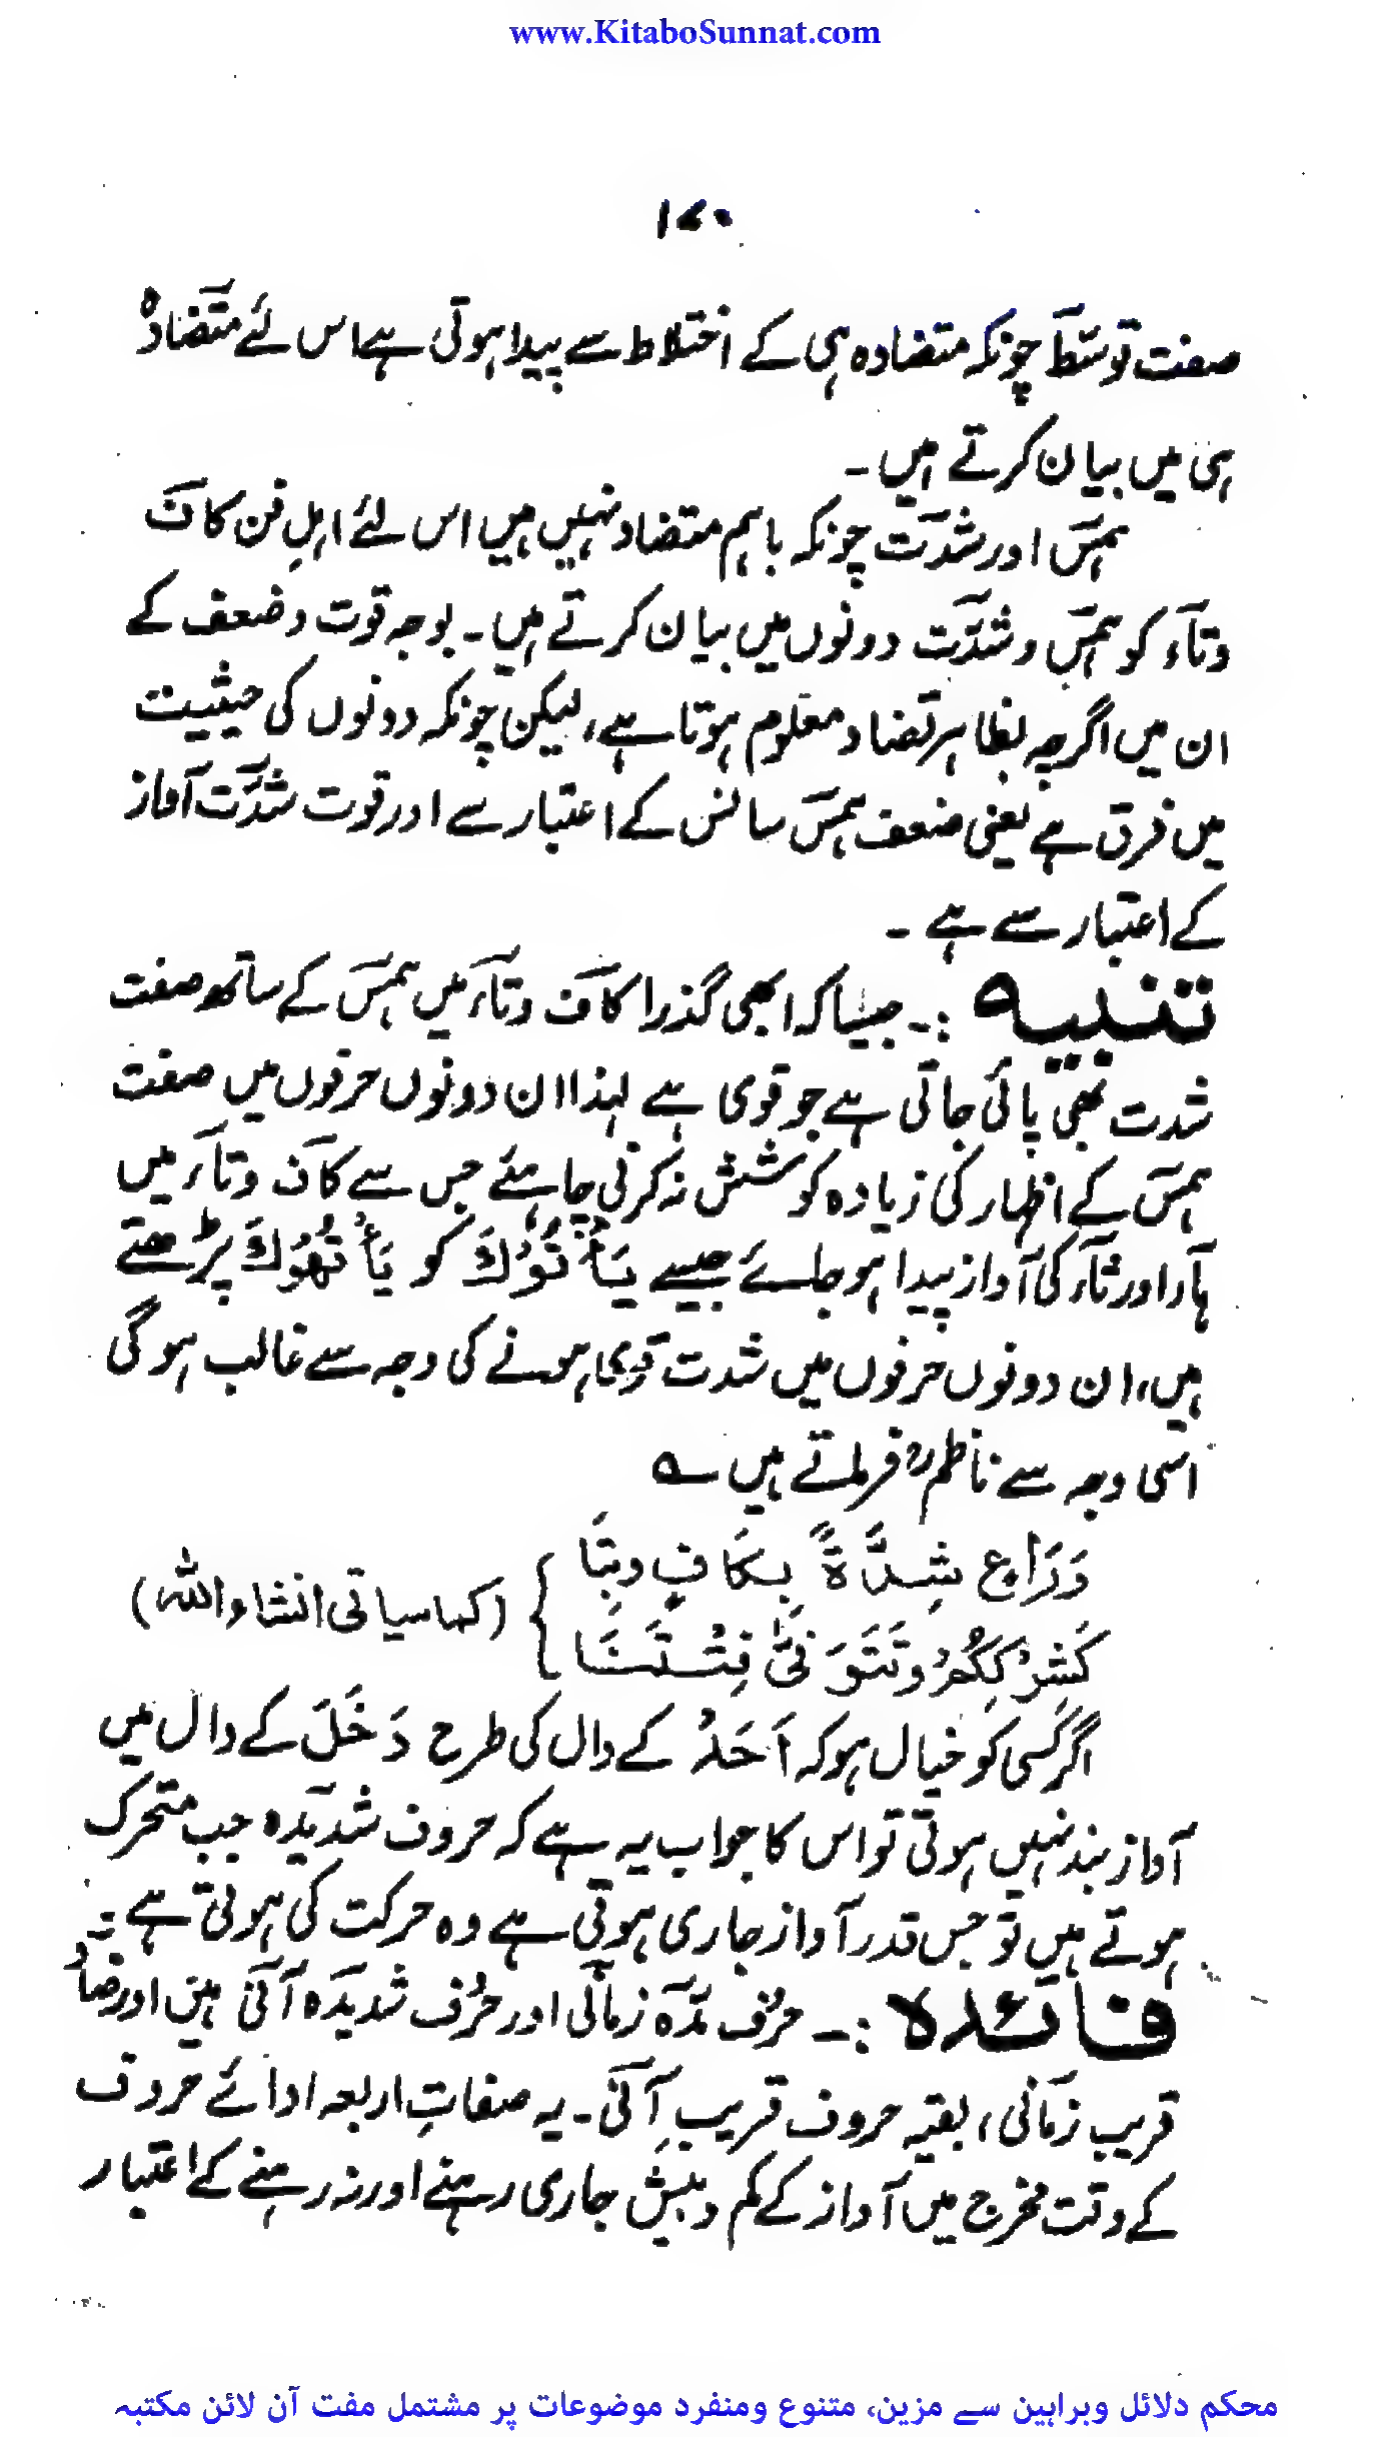 www.KitaboSunnat.com
۱۷۰
صفت توسّط چونکہ متضادہ ہی کے اختلاط سے پیدا ہوتی ہے اس لئے متضادہ
ہی میں بیان کرتے ہیں۔
ہمس اور شدت چونکہ باہم متضاد نہیں ہیں اس لئے اہلِ فن کاف
وتاء کو ہمس و شدت دونوں میں بیان کرتے ہیں۔ بوجہ قوت وضعف کے
ان میں اگرچہ بظاہر تضاد معلوم ہوتا ہے، لیکن چونکہ دونوں کی حیثیت
میں فرق ہے یعنی ضعف ہمس سانس کے اعتبار سے اور قوت شدت آواز
کے اعتبار سے ہے ۔
تنبیہ :۔ جیسا کہ ابھی گذرا کاف وتاء میں ہمس کے ساتھ صفت
شدت بھی پائی جاتی ہے جو قوی ہے لہذا ان دونوں حرفوں میں صفت
ہمس کے اظہار کی زیادہ کوشش نہ کرنی چاہئے جس سے کاف وتاء میں
ہاء اور ثاء کی آواز پیدا ہو جائے جیسے یَأْتُوْكَ کو یَأْتُهُوْكَ پڑھتے
ہیں، ان دونوں حرفوں میں شدت قوی ہونے کی وجہ سے غالب ہوگی
اسی وجہ سے ناظمؒ فرماتے ہیں ؎
وَرَاعِ شِدَّةً بِكَافٍ وبِتَا
كَشِرْكِكُمْ وتَتَوَفّٰى فِتْنَتَا } (کما سیاتی انشاء اللہ)
اگر کسی کو خیال ہو کہ اَحَدْ کے دال کی طرح دَخَلَ کے دال میں
آواز بند نہیں ہوتی تو اس کا جواب یہ ہے کہ حروف شدیدہ جب متحرک
ہوتے ہیں تو جس قدر آواز جاری ہوتی ہے وہ حرکت کی ہوتی ہے۔
فائدہ :۔ حرف مدّہ زمانی اور حرف شدیدہ آنی ہیں اور ضاد
قریب زمانی، بقیہ حروف قریبِ آنی۔ یہ صفاتِ اربعہ ادائے حروف
کے وقت مخرج میں آواز کے کم وبیش جاری رہنے اور نہ رہنے کے اعتبار
محکم دلائل وبراہین سے مزین، متنوع ومنفرد موضوعات پر مشتمل مفت آن لائن مکتبہ